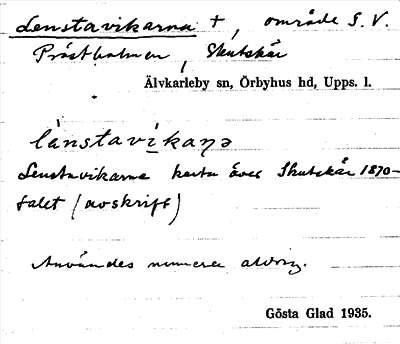 Lenstavikarna +, område S.V.
Prästholmen, Skutskär
Älvkarleby sn, Örbyhus hd, Upps. l.
lä̀nstavi̱kaṇə
Lenstavikarna karta över Skutskär 1870-
talet (avskrift)
Användes numera aldrig.
Gösta Glad 1935.